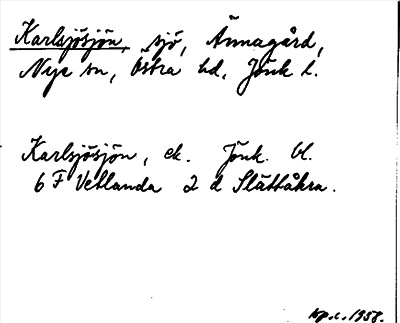 Karlsjösjön, sjö, Ännagård,
Nye sn, Östra hd, Jönk l.
Karlsjösjön, ek. Jönk. bl.
6 F Vetlanda 2 d Slättåkra.
1958.